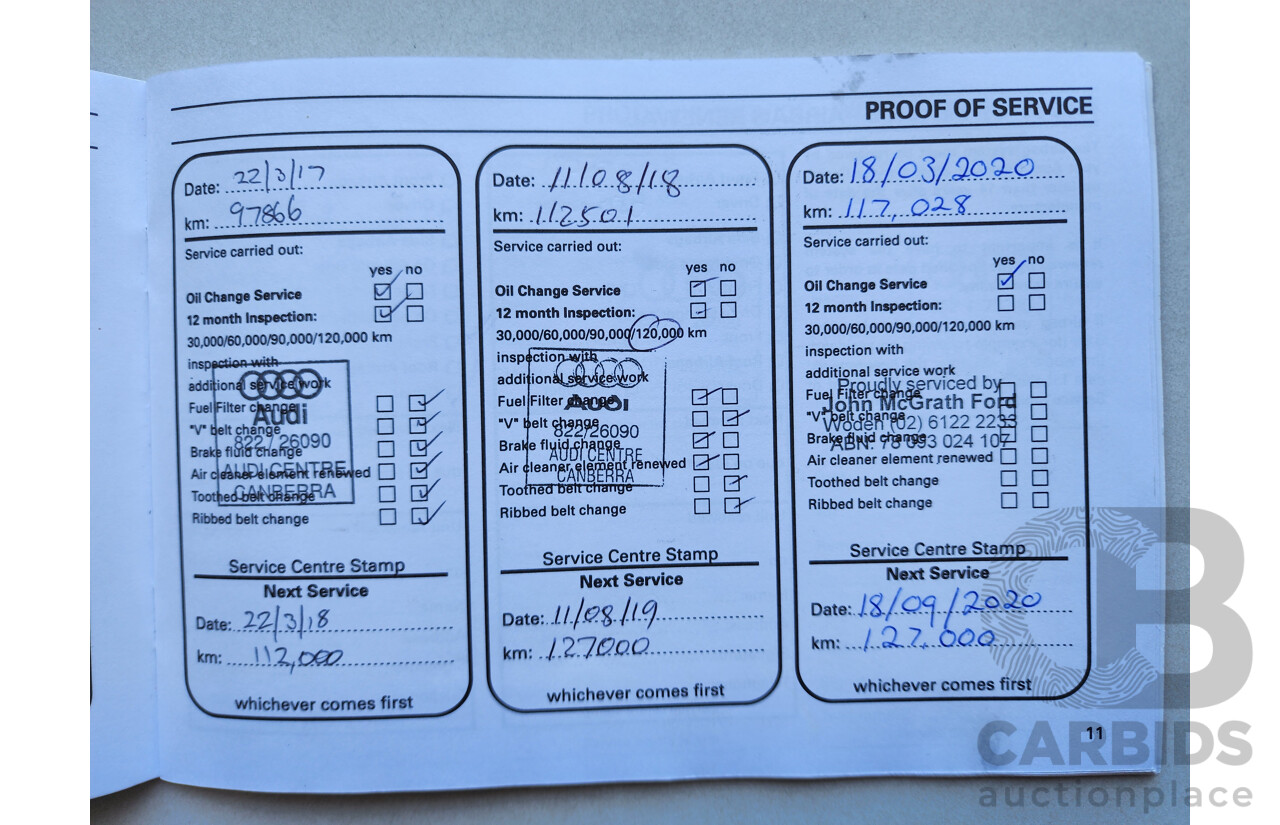 PROOF OF SERVICE
Date: 22/3/17
km: 97866
Service carried out:
yes no
Oil Change Service
12 month Inspection:
30,000/60,000/90,000/120,000 km
inspection with
additional service work
Fuel Filter change
"V" belt change
Brake fluid change
Air cleaner element renewed
Toothed belt change
Ribbed belt change
Audi
822 / 26090
AUDI CENTRE
CANBERRA
Service Centre Stamp
Next Service
Date: 22/3/18
km: 112,000
whichever comes first
Date: 11/08/18
km: 112501
Service carried out:
yes no
Oil Change Service
12 month Inspection:
30,000/60,000/90,000/120,000 km
inspection with
additional service work
Fuel Filter change
"V" belt change
Brake fluid change
Air cleaner element renewed
Toothed belt change
Ribbed belt change
Audi
822/26090
AUDI CENTRE
CANBERRA
Service Centre Stamp
Next Service
Date: 11/08/19
km: 127000
whichever comes first
Date: 18/03/2020
km: 117,028
Service carried out:
yes no
Oil Change Service
12 month Inspection:
30,000/60,000/90,000/120,000 km
inspection with
additional service work
Fuel Filter change
"V" belt change
Brake fluid change
Air cleaner element renewed
Toothed belt change
Ribbed belt change
Proudly serviced by
John McGrath Ford
Woden (02) 6122 2233
ABN: 78 093 024 107
Service Centre Stamp
Next Service
Date: 18/09/2020
km: 127,000
whichever comes first
11
CB
CARBIDS
auctionplace